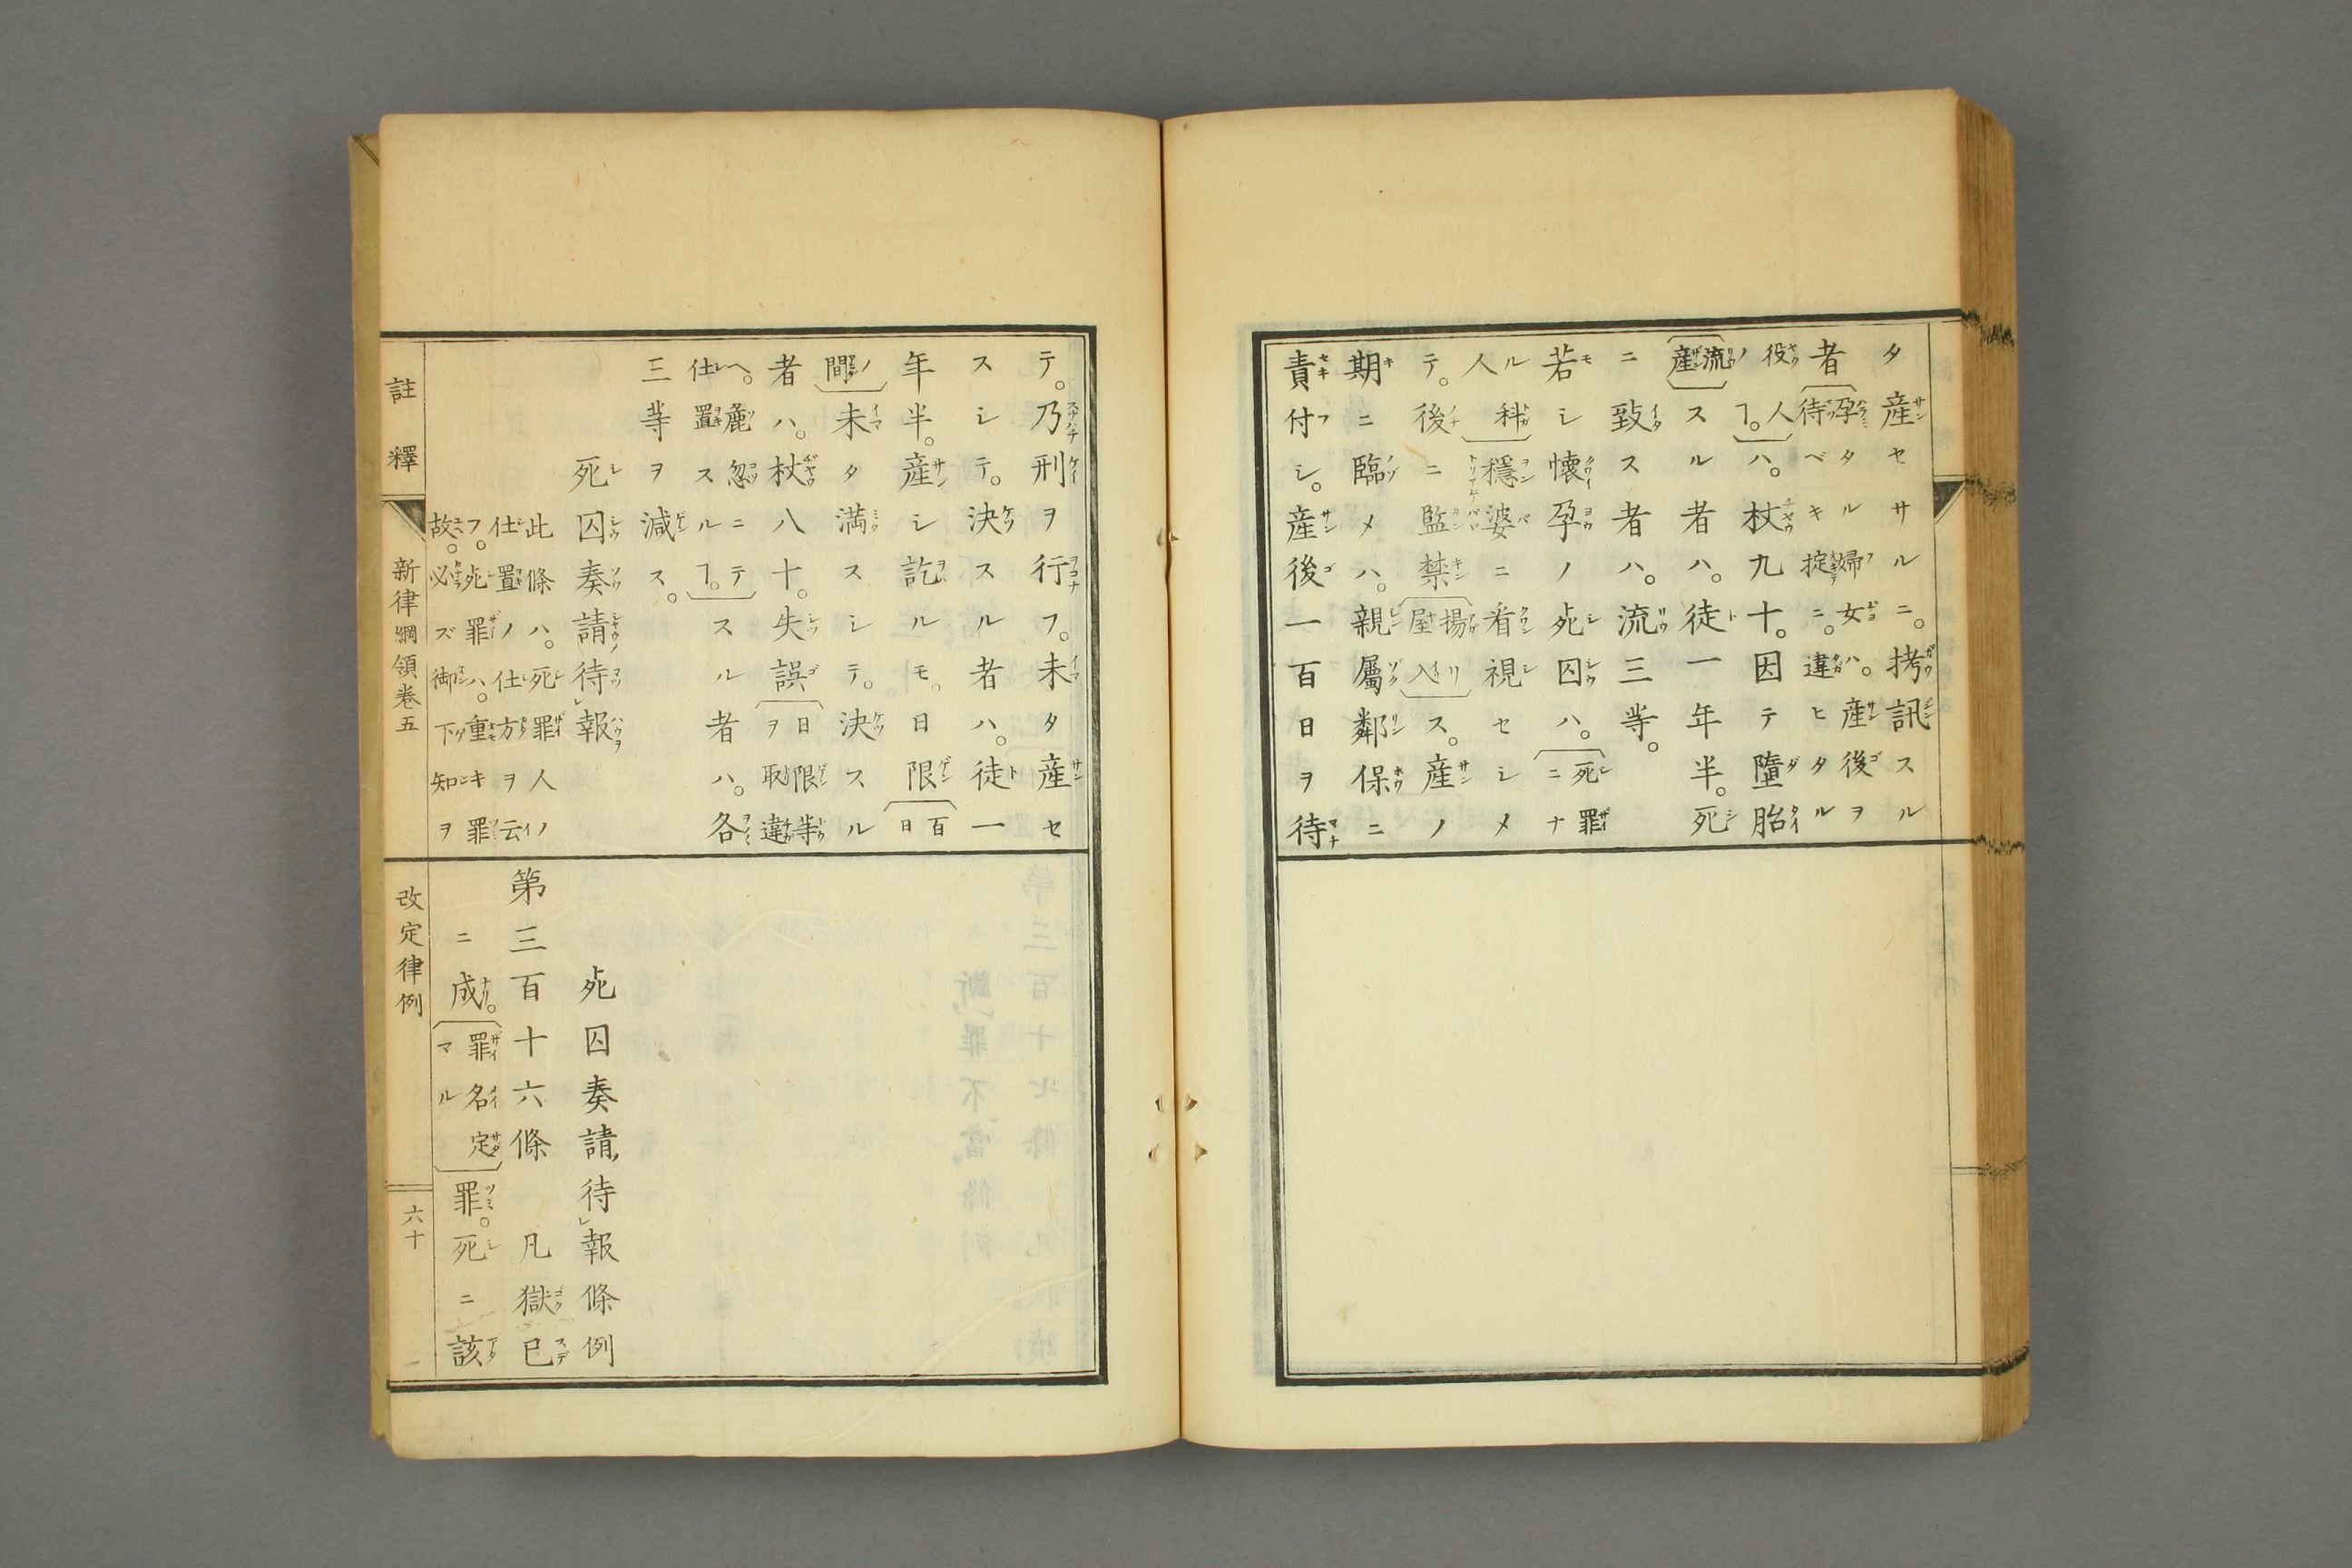 タ産セサルニ。拷訊スル
者(孕タル婦女ハ。産後ヲ待ベキ掟ニ。違ヒタル
役人ノヿ。)ハ。杖九十。因テ墮胎
(流産)スル者ハ。徒一年半。死
ニ致ス者ハ。流三等。
若シ懐孕ノ死囚ハ。(死罪ニナ
ル科人)穩婆ニ看視セシメ
テ。後ニ監禁(揚リ屋入)ス。産ノ
期ニ臨メハ。親屬鄰保ニ
責付シ。産後一百日ヲ待
テ。乃刑ヲ行フ。未タ産セ
スシテ。決スル者ハ。徒一
年半。産シ訖ルモ。日限(百日
ノ間)未タ満スシテ。決スル
者ハ。杖八十。失誤(日限等ヲ取違
ヘ。麁忽ニテ仕置スルヿ。)スル者ハ。各
三等ヲ減ス。
死囚奏請待レ報
此條ハ。死罪人ノ
仕置ノ仕方ヲ云
フ。死罪ハ。重キ罪
故。必ズ御下知ヲ
死囚奏請待レ報條例
第三百十六條 凡獄已
ニ成。(罪名定マル)罪。死ニ該
註釋
新律綱領卷五
改定律例
六十